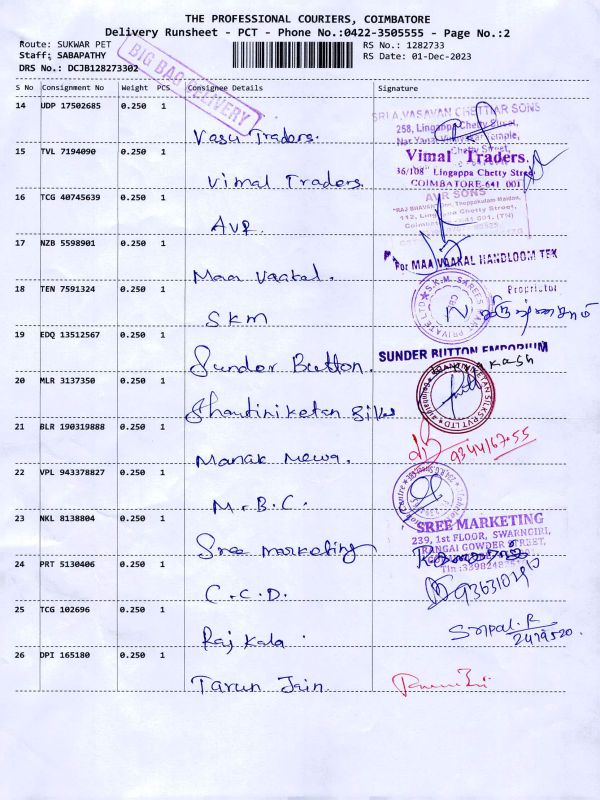 THE PROFESSIONAL COURIERS, COIMBATORE
Delivery Runsheet - PCT - Phone No.:0422-3505555 - Page No.:2
Route: SUKWAR PET
RS No.: 1282733
Staff: SABAPATHY
RS Date: 01-Dec-2023
DRS No.: DCJB128273302
BIG BAG DELIVERY
S No Consignment No Weight PCS Consignee Details Signature
14 UDP 17502685 0.250 1
Vasu Traders.
SRI A.VASAVAN CHETTIAR SONS
258, Lingappa Chetty Street,
15 TVL 7194090 0.250 1
Vimal Traders.
Vimal Traders.
36/108" Lingappa Chetty Street
COIMBATORE-641 001
16 TCG 40745639 0.250 1
AVR
AVR SONS
112, Lingappa Chetty Street,
17 NZB 5598901 0.250 1
Maa Vaakal.
For MAA VAAKAL HANDLOOM TEX
Proprietor
18 TEN 7591324 0.250 1
SKM
S.K.M. SAREES PRIVATE LTD
CBE
19 EDQ 13512567 0.250 1
Sunder Button.
SUNDER BUTTON EMPORIUM
20 MLR 3137350 0.250 1
Shantiniketan Silks
SHANTINIKETAN SILKS PVT LTD
21 BLR 190319888 0.250 1
Manak Mewa.
9344167.55
22 VPL 943378827 0.250 1
M.B.C.
23 NKL 8138804 0.250 1
Sree marketing
SREE MARKETING
239, 1st FLOOR, SWARNGIRI,
RANGAI GOWDER STREET,
24 PRT 5130406 0.250 1
C.C.D.
25 TCG 102696 0.250 1
Raj Kala
Sripal.R
26 DPI 165180 0.250 1
Tarun Jain.